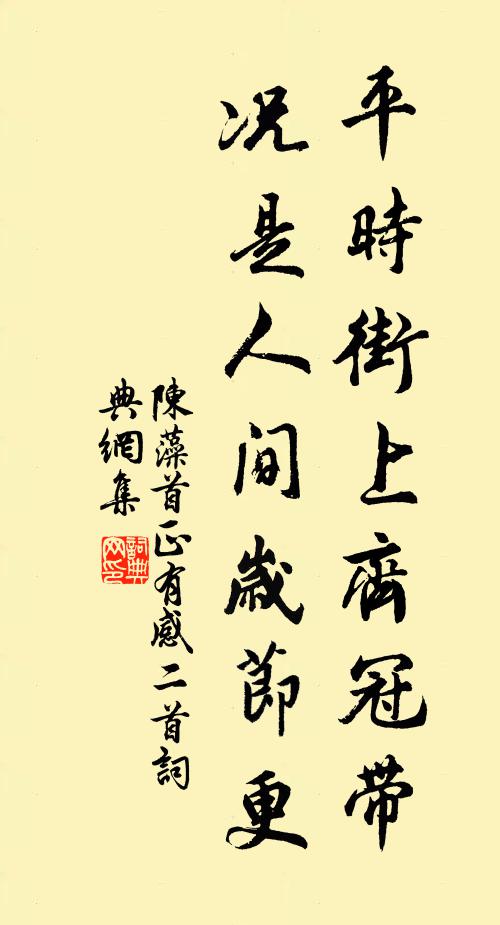 平時街上齊冠帶
况是人間歲節更
陳藻首正有感二首詞
典網集
詞典
网印